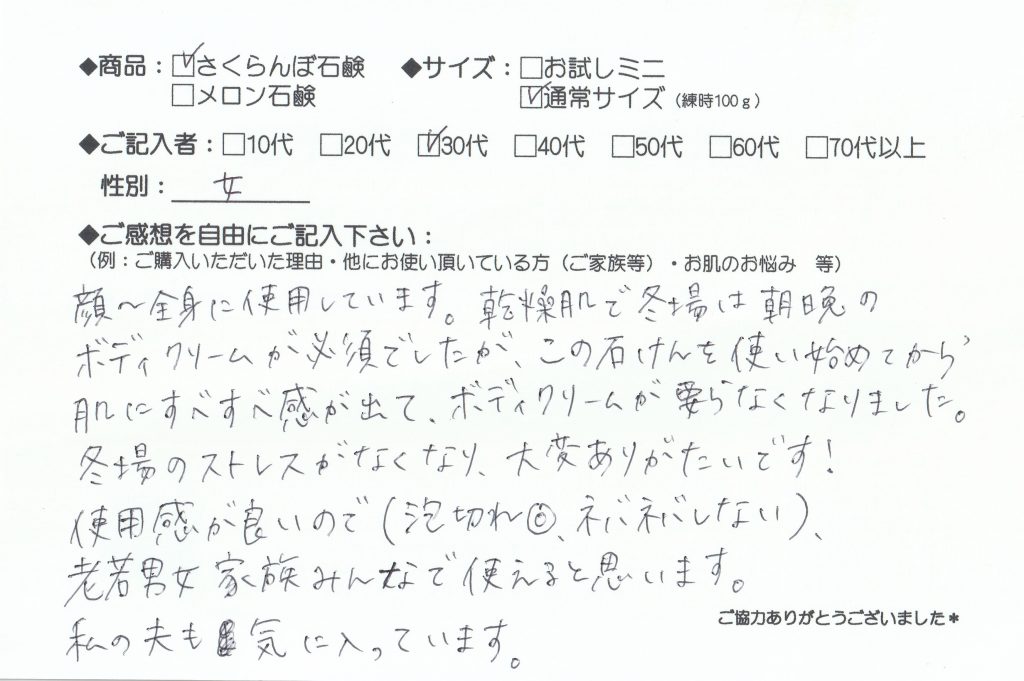 ◆商品：☑さくらんぼ石鹸　◆サイズ：□お試しミニ
□メロン石鹸　☑通常サイズ（練時100ｇ）
◆ご記入者：□10代　□20代　☑30代　□40代　□50代　□60代　□70代以上
性別：女
◆ご感想を自由にご記入下さい：
（例：ご購入いただいた理由・他にお使い頂いている方（ご家族等）・お肌のお悩み　等）
顔～全身に使用しています。乾燥肌で冬場は朝晩の
ボディクリームが必須でしたが、この石けんを使い始めてから、
肌にすべすべ感が出て、ボディクリームが要らなくなりました。
冬場のストレスがなくなり、大変ありがたいです！
使用感が良いので（泡切れ◎、ネバネバしない）、
老若男女 家族みんなで使えると思います。
私の夫も気に入っています。
ご協力ありがとうございました＊